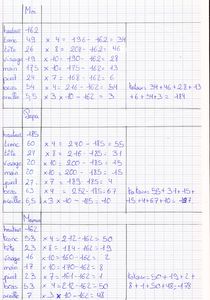 Moi
hauteur 162
tronc 49 × 4 = 196 - 162 = 34
tête 26 × 8 = 208 - 162 = 46
visage 19 × 10 = 190 - 162 = 28
main 175 × 10 = 175 - 162 = 13
pied 24 × 7 = 168 - 162 = 6
bras 54 × 4 = 216 - 162 = 54 total = 34+46+28+13
oreille 5,5 × 3 × 10 - 162 = 3 +6+54+3 = 184
Papa
hauteur 185
tronc 60 × 4 = 240 - 185 = 55
tête 27 × 8 = 216 - 185 = 31
visage 20 × 10 = 200 - 185 = 15
main 20 × 10 = 200 - 185 = 15
pied 27 × 7 = 189 - 185 = 4
bras 63 × 4 = 252 - 185 = 67 total = 55+31+15+
oreille 6,5 × 3 × 10 - 185 = 10 15+4+67+10 = 197
Maman
hauteur 162
tronc 53 × 4 = 212 - 162 = 50
tête 23 × 8 = 184 - 162 = 19
visage 16 × 10 = 160 - 162 = 2
main 17 × 10 = 170 - 162 = 8
pied 23 × 7 = 161 - 162 = 1 total = 50+19+2+
bras 53 × 4 = 212 - 162 = 50 8+1+50+48=178
oreille 7 × 3 × 10 - 162 = 48